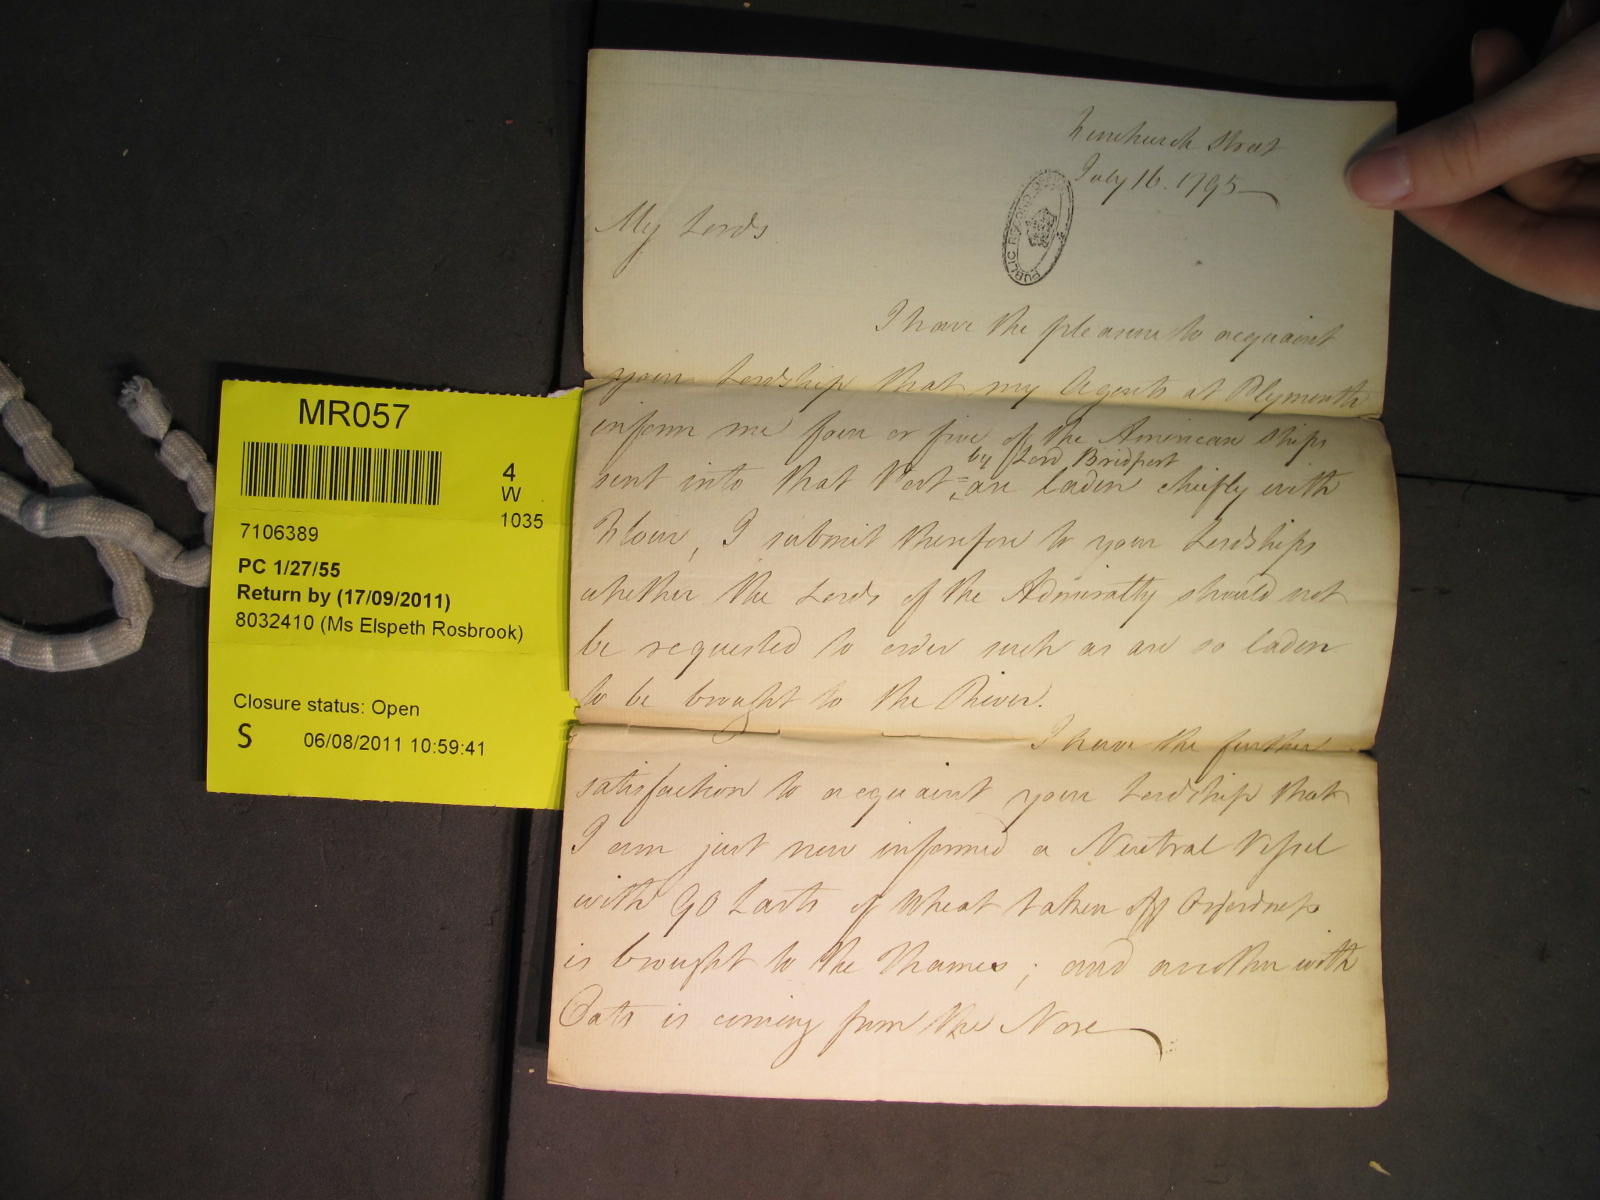 MR057
4
W
1035
7106389
PC 1/27/55
Return by (17/09/2011)
8032410 (Ms Elspeth Rosbrook)
Closure status: Open
S 06/08/2011 10:59:41
Fenchurch Street
July 16. 1795
PUBLIC RECORD OFFICE
My Lords
I have the pleasure to acquaint
your Lordship that my Agents at Plymouth
inform me four or five of the American Ships
by Lord Bridport
sent into that Port are laden chiefly with
Flour, I submit therefore to your Lordships
whether the Lords of the Admiralty should not
be requested to order such as are so laden
to be brought to the River.
I have the further
satisfaction to acquaint your Lordship that
I am just now informed a Neutral Vessel
with 90 Lasts of Wheat taken off Orfordness
is brought to the Thames; and another with
Oats is coming from the Nore